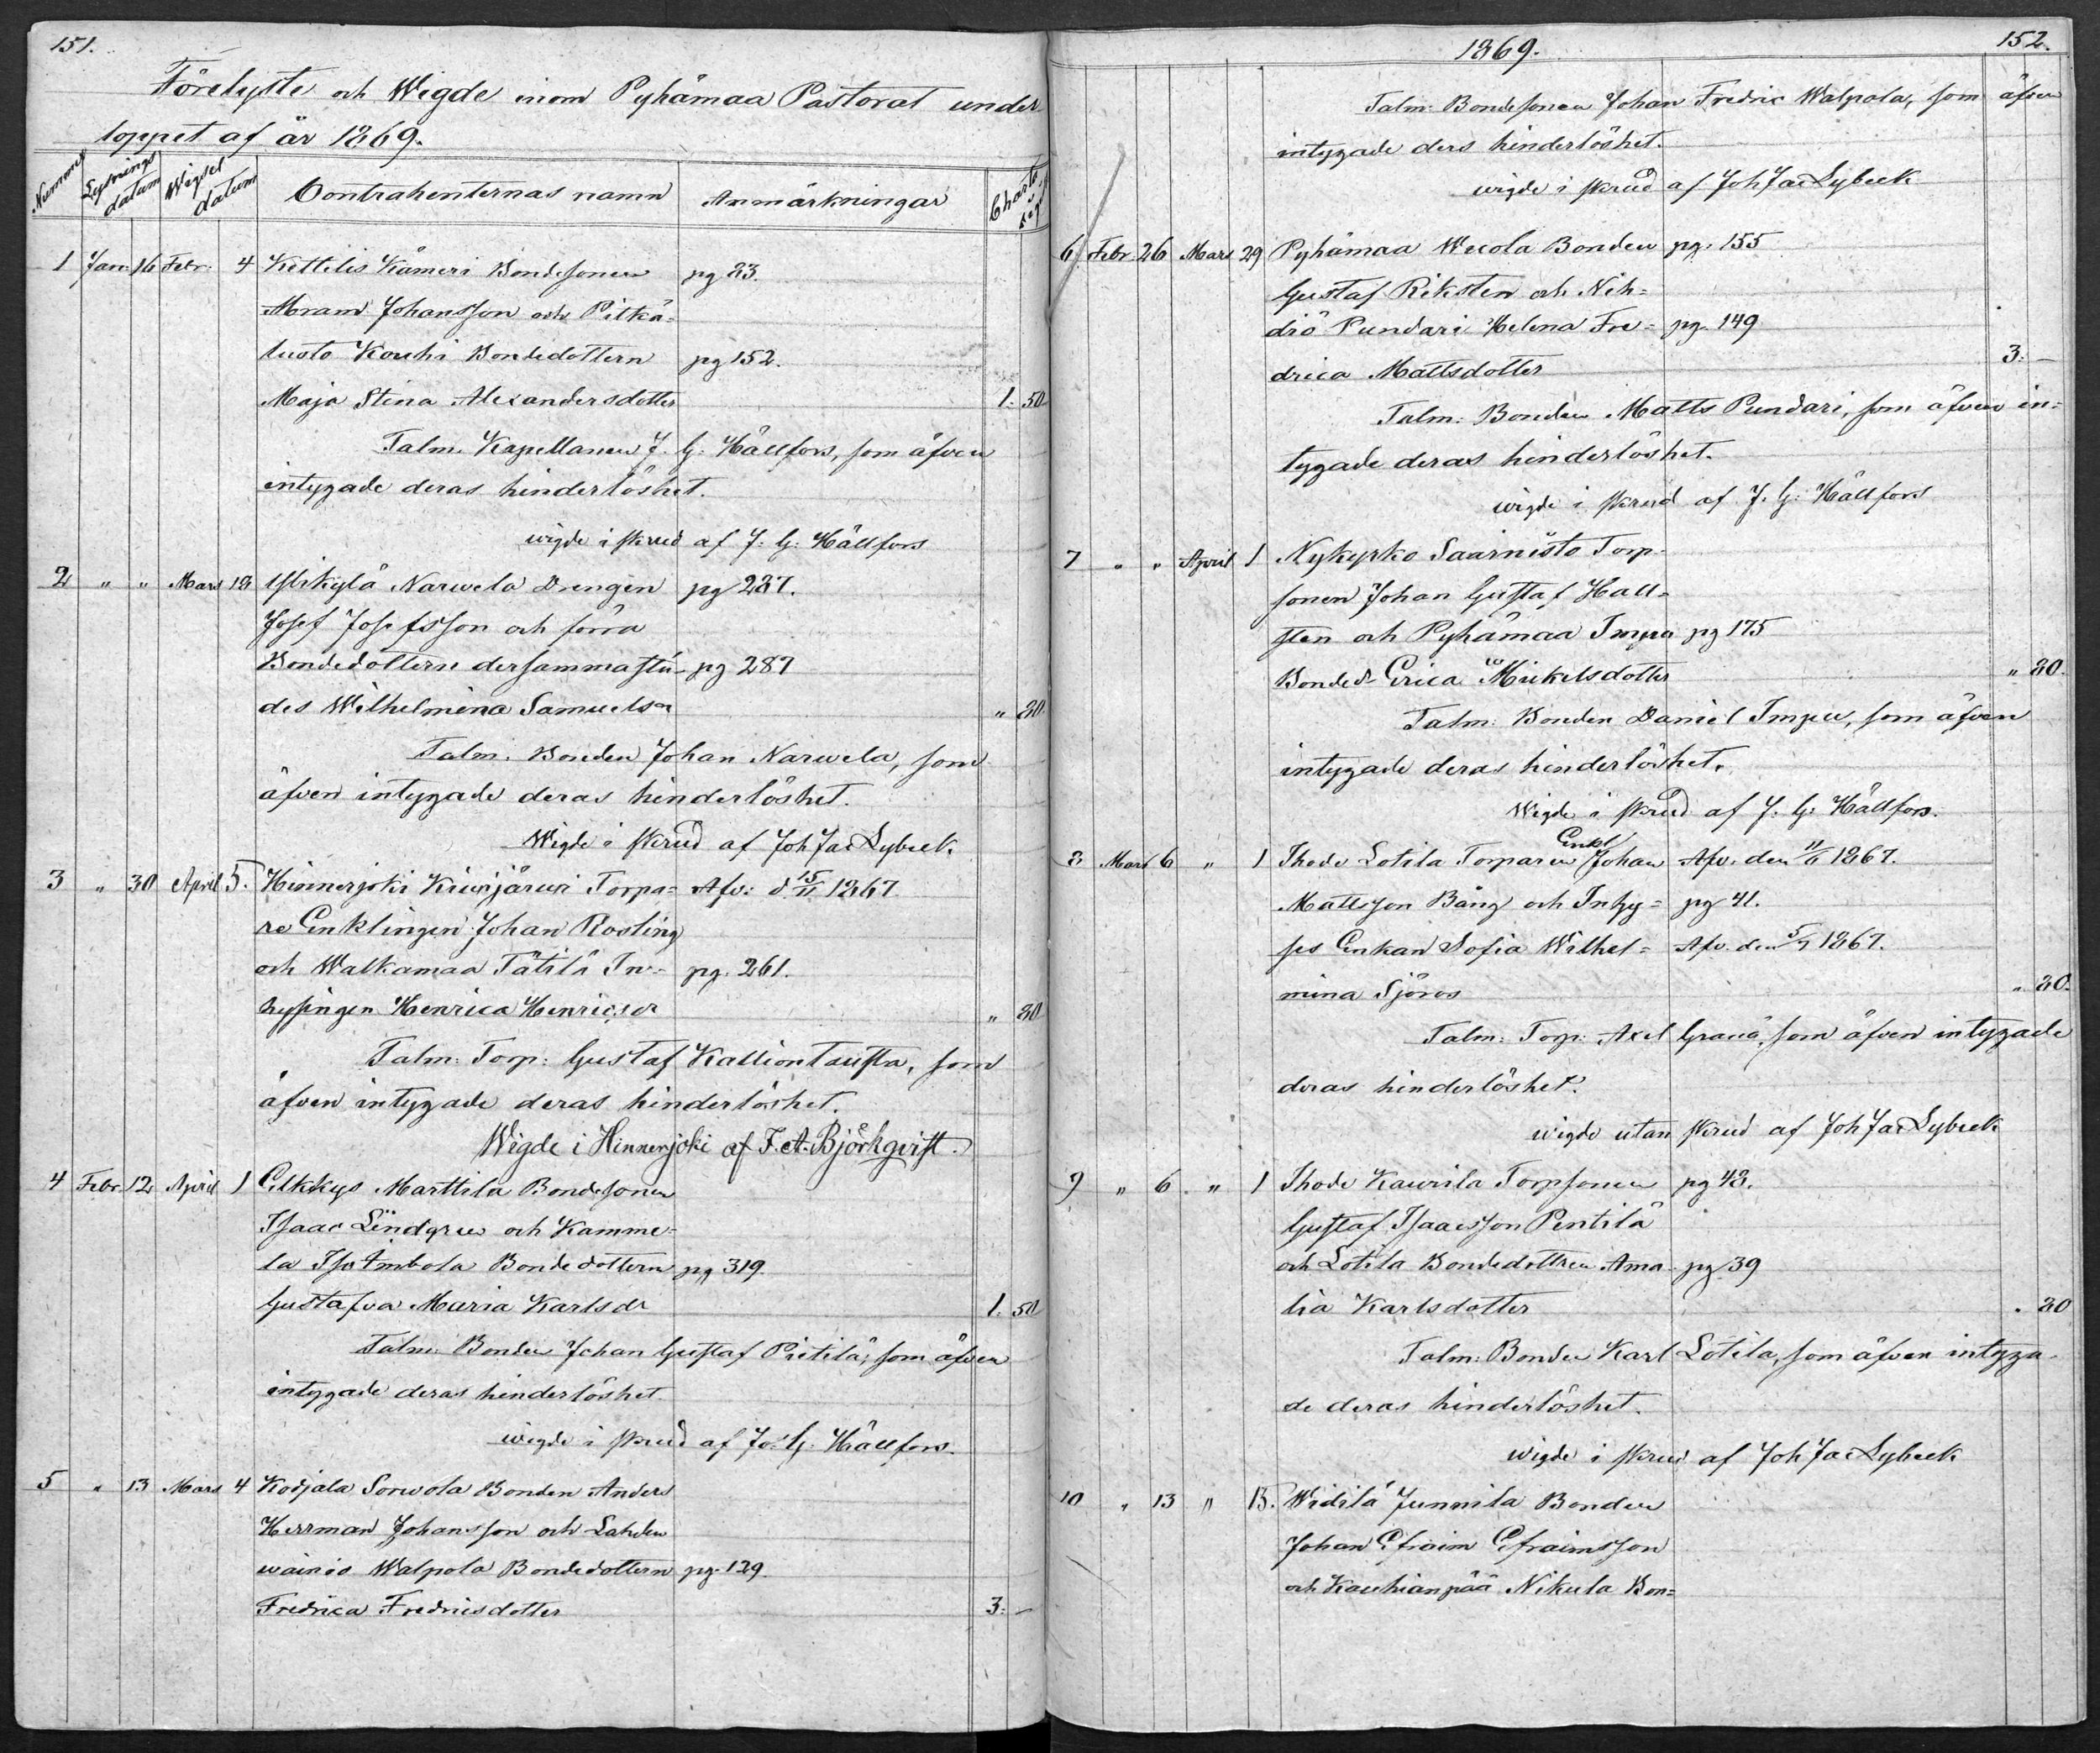 151.
Förelyste och Wigde inom Pyhämaa Pastorat under
loppet af år 1869.
Nummer Lysnings datum Wigsel datum Contrahenternas namn Anmärkningar Charta
1 Jan: 16 Febr: 4 Kettelis Kämeri Bondesonen pg 83.
Johansson och Pitkä-
luoto Kouhi Bondedottern pg 152.
Maja Stina Alexandersdotter 1: 50
Talm. Kapellanen J. G. Hällfors, som äfven
intygade deras hinderlöshet.
wigde i skrud af J. G. Hällfors
2 " " Mars 18 Ylikylä Narwela Drengen pg 287.
Josef Josefsson och förra
Bondedottern dersammastä- pg 287
des Wilhelmina Samuelsdr " 80
Talm. Bonden Johan Narwela, som
äfven intygade deras hinderlöshet.
Wigde i skrud af Joh Jac Lybeck
3 " 30 April 5. Hinnerjoki Kiwijärwi Torpa- Afv: d. 15/11 1867
re Enklingen Johan Rosling
och Walkamaa Tätilä In- pg. 261.
hysingen Henrica Henricsdr " 80
Talm: Torp: Gustaf Kalliontausta, som
äfven intygade deras hinderlöshet.
Wigde i Hinnerjoki af F. A. Björkqvist.
4 Febr. 12 April 1 Elkkys Marttila Bondesonen
Isaac Lindgren och Kamme-
la Iso Ambola Bondedottern pg 319.
Gustafva Maria Karlsdr 1. 50
Talm: Bonden Johan Gustaf Pietilä, som äfven
intygade deras hinderlöshet
wigde i skrud af J. G. Hällfors.
5 " 13 Mars 4 Kodjala Sorwola Bonden Anders
Herrman Johansson och Lahden
wainio Walpola Bondedottern pg. 129.
Fredrica Fredricsdotter 3: –
1869. 152.
Talm: Bondesonen Johan Fredric Walpola, som äfven
intygade ders hinderlöshet.
wigde i skrud af Joh Jac Lybeck
6 Febr. 26 Mars 29 Pyhämaa Wecola Bonden pg. 155
Gustaf Riksten och Nih-
diö Pundari Helena Fre- pg. 149
drica Mattsdotter 3: –
Talm: Bonden Matts Pundari, som äfven in-
tygade deras hinderlöshet.
wigde i skrud af J. G. Hällfors
7 " " April 1 Nykyrko Saarnisto Torp-
sonen Johan Gustaf Hall-
sten och Pyhämaa Impu pg 175
Bonded. Erica Mickelsdotter " 80.
Talm: Bonden Daniel Impu, som äfven
intygade deras hinderlöshet.
Wigde i skrud af J. G. Hällfors.
Enkl
8 Mars 6 " 1 Ihode Lotila Torparen Johan Afv. den 11/6 1867.
Mattsson Bång och Inhy- pg 41.
ses Enkan Sofia Wilhel- Afv. den 5/7 1867.
mina Sjöroos " 80.
Talm: Torp: Axel Granö, som äfven intygade
deras hinderlöshet.
wigde utan skrud af Joh Jac Lybeck
9 " 6 " 1 Ihode Kaurila Torpsonen pg 43.
Gustaf Isaacsson Pentilä
och Lotila Bondedottren Ama- pg 39
lia Karlsdotter " 80
Talm: Bonden Karl Lotila, som äfven intyga-
de deras hinderlöshet.
wigde i skrud af Joh Jac Lybeck
10 " 13 " 13. Widilä Junnila Bonden
Johan Efraim Efraimsson
och Kauhianpää Nikula Bon-